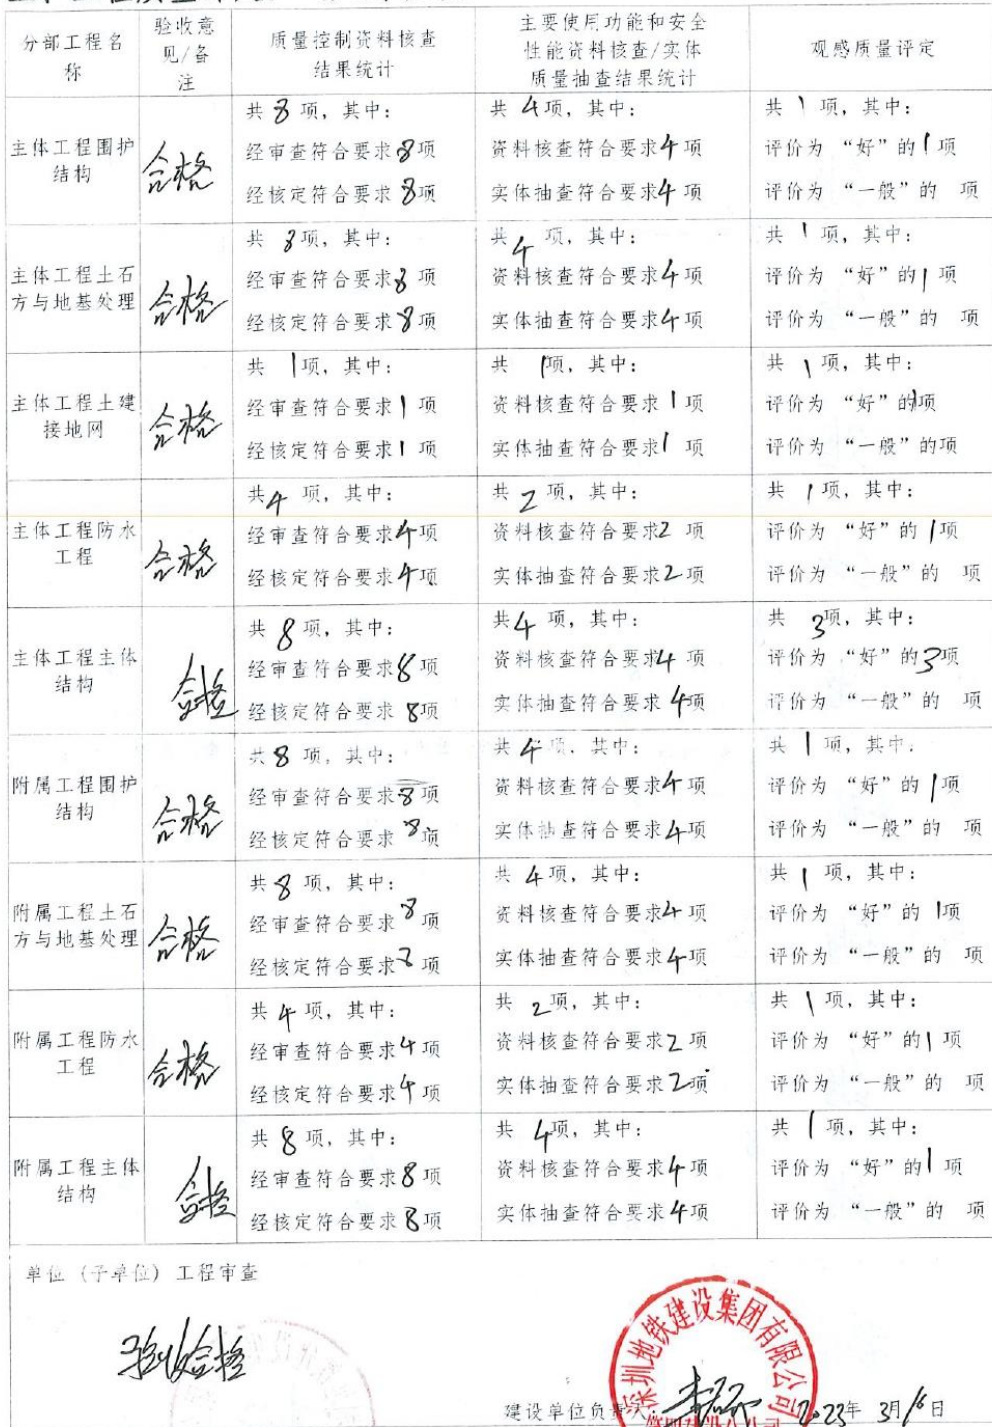 分部工程名
称
验收意
见/备
注
质量控制资料核查
结果统计
主要使用功能和安全
性能资料核查/实体
质量抽查结果统计
观感质量评定
主体工程围护
结构
合格
共 8 项，其中：
经审查符合要求8项
经核定符合要求 8项
共 4项，其中：
资料核查符合要求4项
实体抽查符合要求4项
共 1 项，其中：
评价为 “好”的1项
评价为 “一般”的 项
主体工程土石
方与地基处理
合格
共 8项，其中：
经审查符合要求8 项
经核定符合要求 8项
共 4 项，其中：
资料核查符合要求4项
实体抽查符合要求4项
共 1 项，其中：
评价为 “好”的1 项
评价为 “一般”的 项
主体工程土建
接地网
合格
共 1项，其中：
经审查符合要求1 项
经核定符合要求1 项
共 1项，其中：
资料核查符合要求 1项
实体抽查符合要求1 项
共 1 项，其中：
评价为 “好”的1项
评价为 “一般”的项
主体工程防水
工程
合格
共4 项，其中：
经审查符合要求4项
经核定符合要求4项
共 2 项，其中：
资料核查符合要求2 项
实体抽查符合要求2 项
共 1项，其中：
评价为 “好”的 1项
评价为 “一般”的 项
主体工程主体
结构
合格
共 8 项，其中：
经审查符合要求8 项
经核定符合要求 8项
共4 项，其中：
资料核查符合要求4 项
实体抽查符合要求 4项
共 3项，其中：
评价为 “好”的3项
评价为 “一般”的 项
附属工程围护
结构
合格
共 8 项，其中：
经审查符合要求8项
经核定符合要求 8项
共 4 项，其中：
资料核查符合要求4项
实体抽查符合要求4项
共 1 项，其中：
评价为 “好”的 1项
评价为 “一般”的 项
附属工程土石
方与地基处理
合格
共 8 项，其中：
经审查符合要求8 项
经核定符合要求 项
共 4项，其中：
资料核查符合要求4项
实体抽查符合要求4项
共 1 项，其中：
评价为 “好”的 1项
评价为 “一般”的 项
附属工程防水
工程
合格
共 4 项，其中：
经审查符合要求4 项
经核定符合要求4 项
共 2项，其中：
资料核查符合要求2 项
实体抽查符合要求2项
共 1 项，其中：
评价为 “好”的1 项
评价为 “一般”的 项
附属工程主体
结构
合格
共 8 项，其中：
经审查符合要求8 项
经核定符合要求 8项
共 4项，其中：
资料核查符合要求4 项
实体抽查符合要求4项
共 1 项，其中：
评价为 “好”的1 项
评价为 “一般”的 项
单位（子单位）工程审查
验收合格
深圳地铁建设集团有限公司
建设单位负责人：
2023年 3月16日